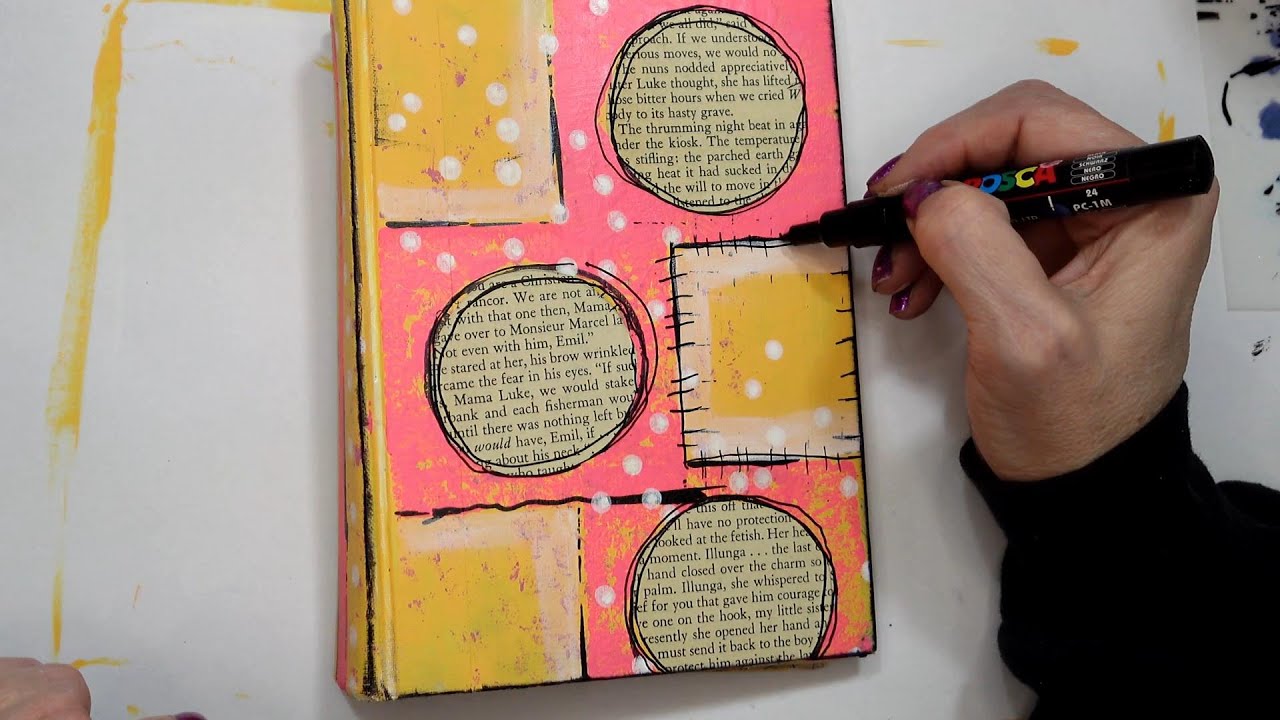 we all did," said
If we understood
moves, we would no
nuns nodded appreciatively
Luke thought, she has lifted
bitter hours when we cried W
to its hasty grave.
The thrumming night beat in
the kiosk. The temperature
stifling: the parched earth
heat it had sucked in
the will to move in
to the
are a Christian
rancor. We are not
with that one then, Mama
over to Monsieur Marcel
not even with him, Emil."
stared at her, his brow wrinkled
came the fear in his eyes. "If
Mama Luke, we would stake
bank and each fisherman
until there was nothing left
would have, Emil, if
about his neck
who taught
this off
have no protection
looked at the fetish. Her
moment. Illunga . . . the last
hand closed over the charm so
palm. Illunga, she whispered to
for you that gave him courage
one on the hook, my little
she opened her hand
must send it back to the boy
protect him against the
POSCA
NOIR
SCHWARZ
NERO
NEGRO
24
PC-1M